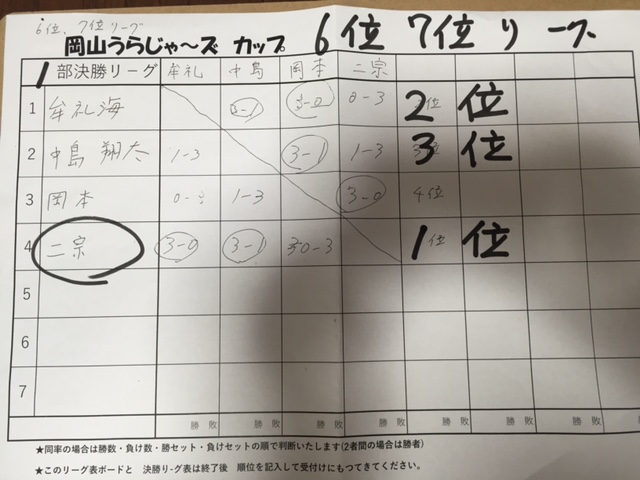 6位、7位リーグ
岡山うらじゃ〜ズ カップ 6位 7位 リーグ
1部決勝リーグ 牟礼 中島 岡本 二宗
1 牟礼海 3-1 3-0 0-3 2位
2 中島 翔太 1-3 3-1 1-3 3位
3 岡本 0-3 1-3 3-0 4位
4 二宗 3-0 3-1 0-3 1位
5
6
7
勝 敗 勝 敗 勝 敗 勝 敗 勝 敗 勝 敗 勝 敗 勝 敗
★同率の場合は勝数・負け数・勝セット・負けセットの順で判断いたします(2者間の場合は勝者)
★このリーグ表ボードと 決勝リ-グ表は終了後 順位を記入して受付けにもつてきてください。